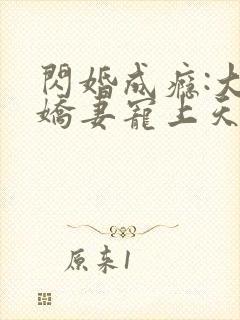 閃婚成癮:大
嬌妻寵上天
原来1